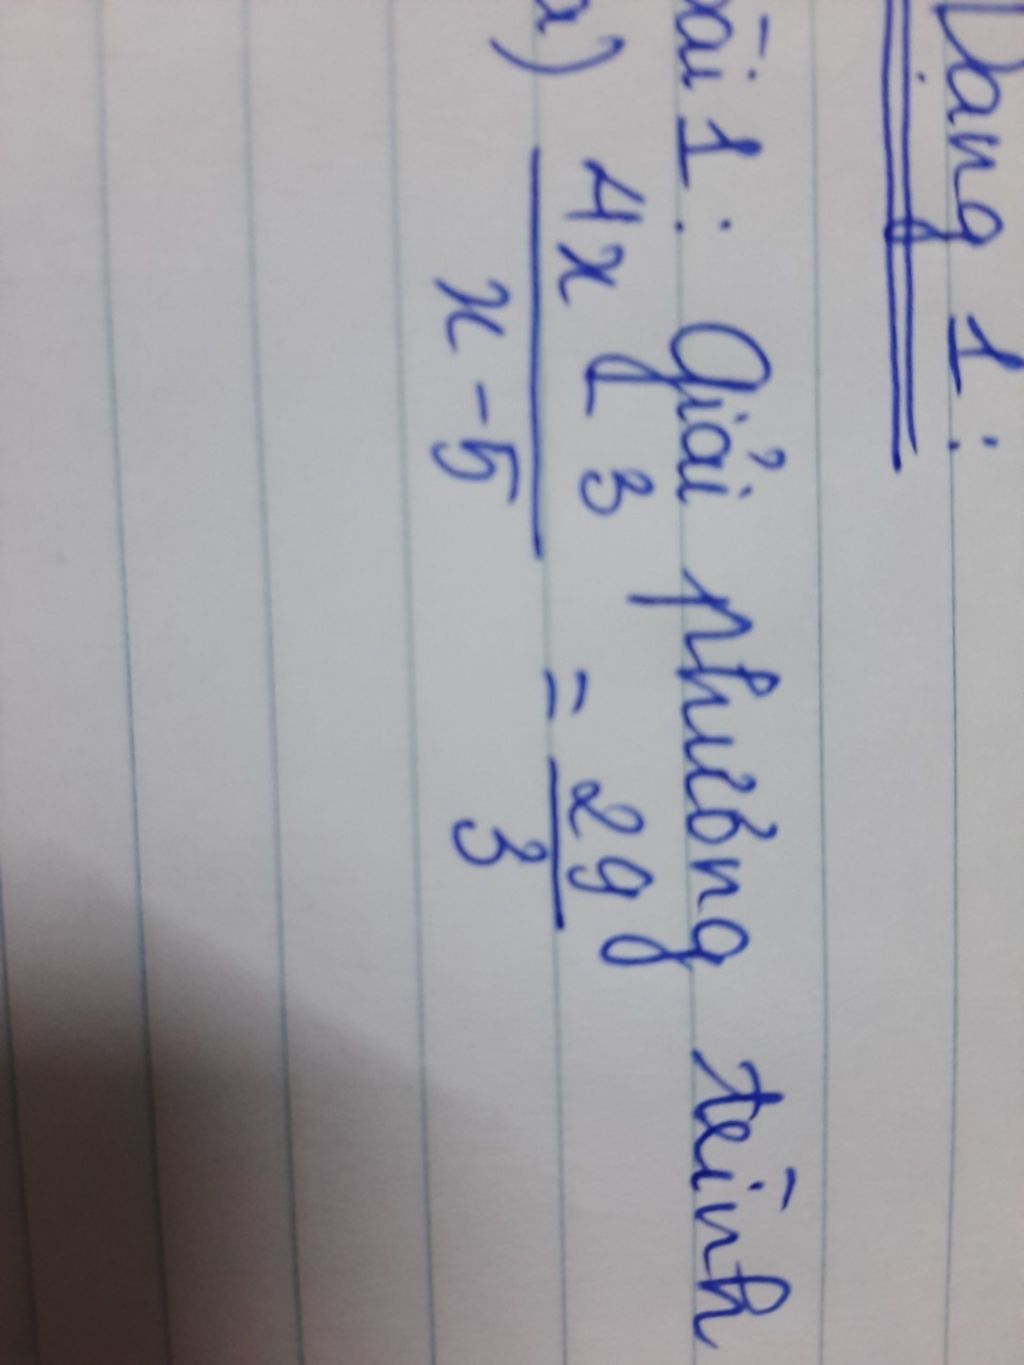 Dạng 1:
bài 1: Giải phương trình
a) 4x - 3 = 29
x - 5 3